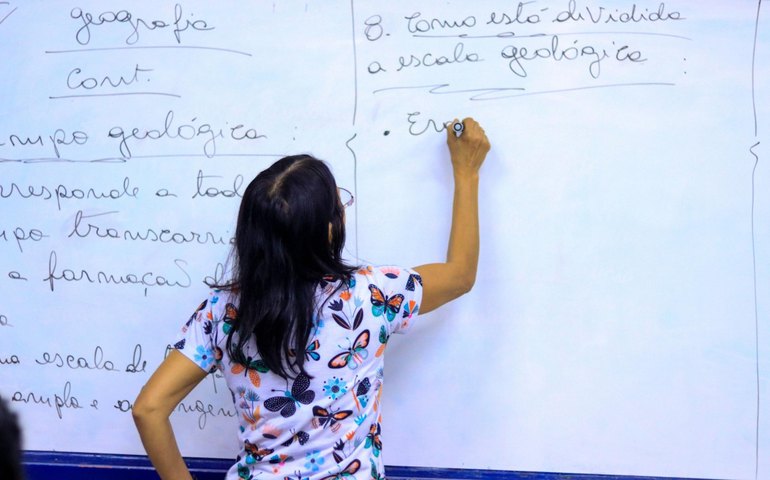 geografia
Cont.
empo geológica :
rresponde a tod
po transcorri
a formação d
a
ma escala de
ampla e abrangen
8. Como está dividida
a escala geológica :
• Era